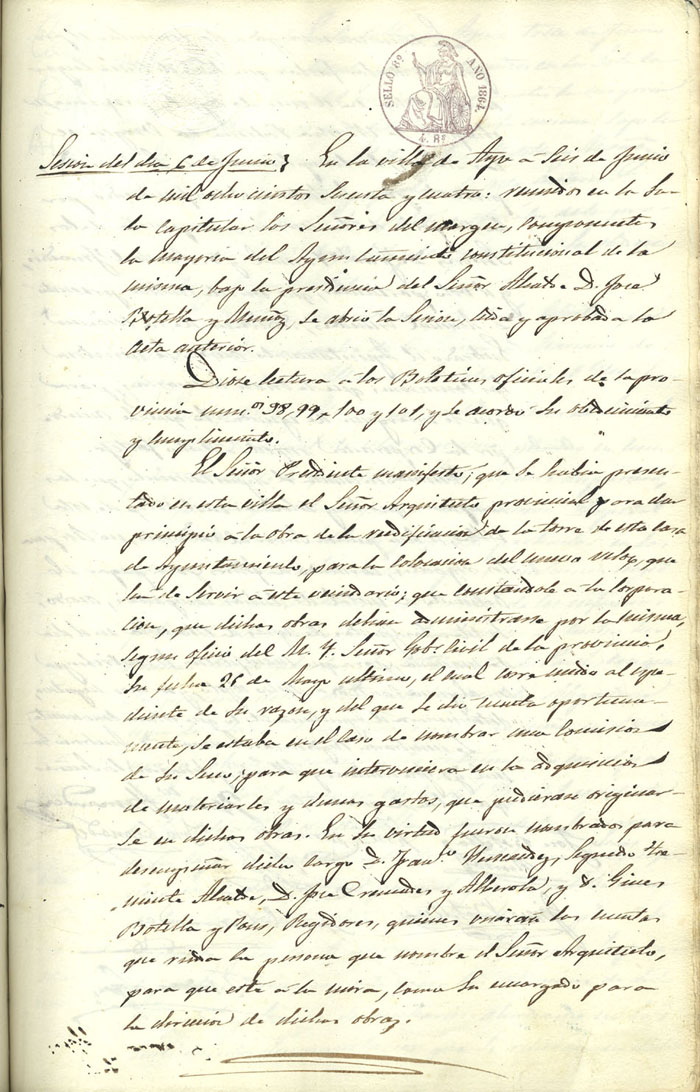 SELLO 8º AÑO 1864
4. Rs
Sesion del dia 6 de Junio} En la villa de Aspe à seis de Junio
de mil ochocientos sesenta y cuatro: reunidos en la Sa-
la Capitular los Señores del margen, componentes
la mayoria del Ayuntamiento constitucional de la
misma, bajo la presidencia del Señor Alcalde D. José
Botella y Muñoz, se abrió la Sesion, leida y aprobada la
acta anterior.
Diose lectura à los Boletines oficiales de la pro-
vincia num.os 98, 99, 100 y 101, y se acordó su obedecimiento
y cumplimiento.
El Señor Presidente manifestó; que se habia presen-
tado en esta villa el Señor Arquitecto provincial para dar
principio à la obra de la redificacion de la torre de esta casa
de Ayuntamiento, para la colocacion del nuevo relox, que
ha de servir à este vecindario; que constandole à la corpora-
cion, que dichas obras debian administrarse por la misma,
segun oficio del M. Y. Señor Gob.r Civil de la provincia,
su fecha 25 de Mayo ultimo, el cual corre unido al espe-
diente de su razon, y del que se dió cuenta oportuna-
mente, se estaba en el caso de nombrar una Comision
de su seno, para que interviniera en la adquisicion
de materiales y demas gastos, que pudieran originar-
se en dichas obras. En su virtud fueron nombrados para
desempeñar dicho cargo D. Fran.co Hernandez, Segundo Te-
niente Alcalde, D. José Cremades y Alberola, y D. Gines
Botella y Pons, Regidores, quienes visarán las cuentas
que rinda la persona que nombre el Señor Arquitecto,
para que esté à la mira, como su encargado para
la direccion de dichas obras.